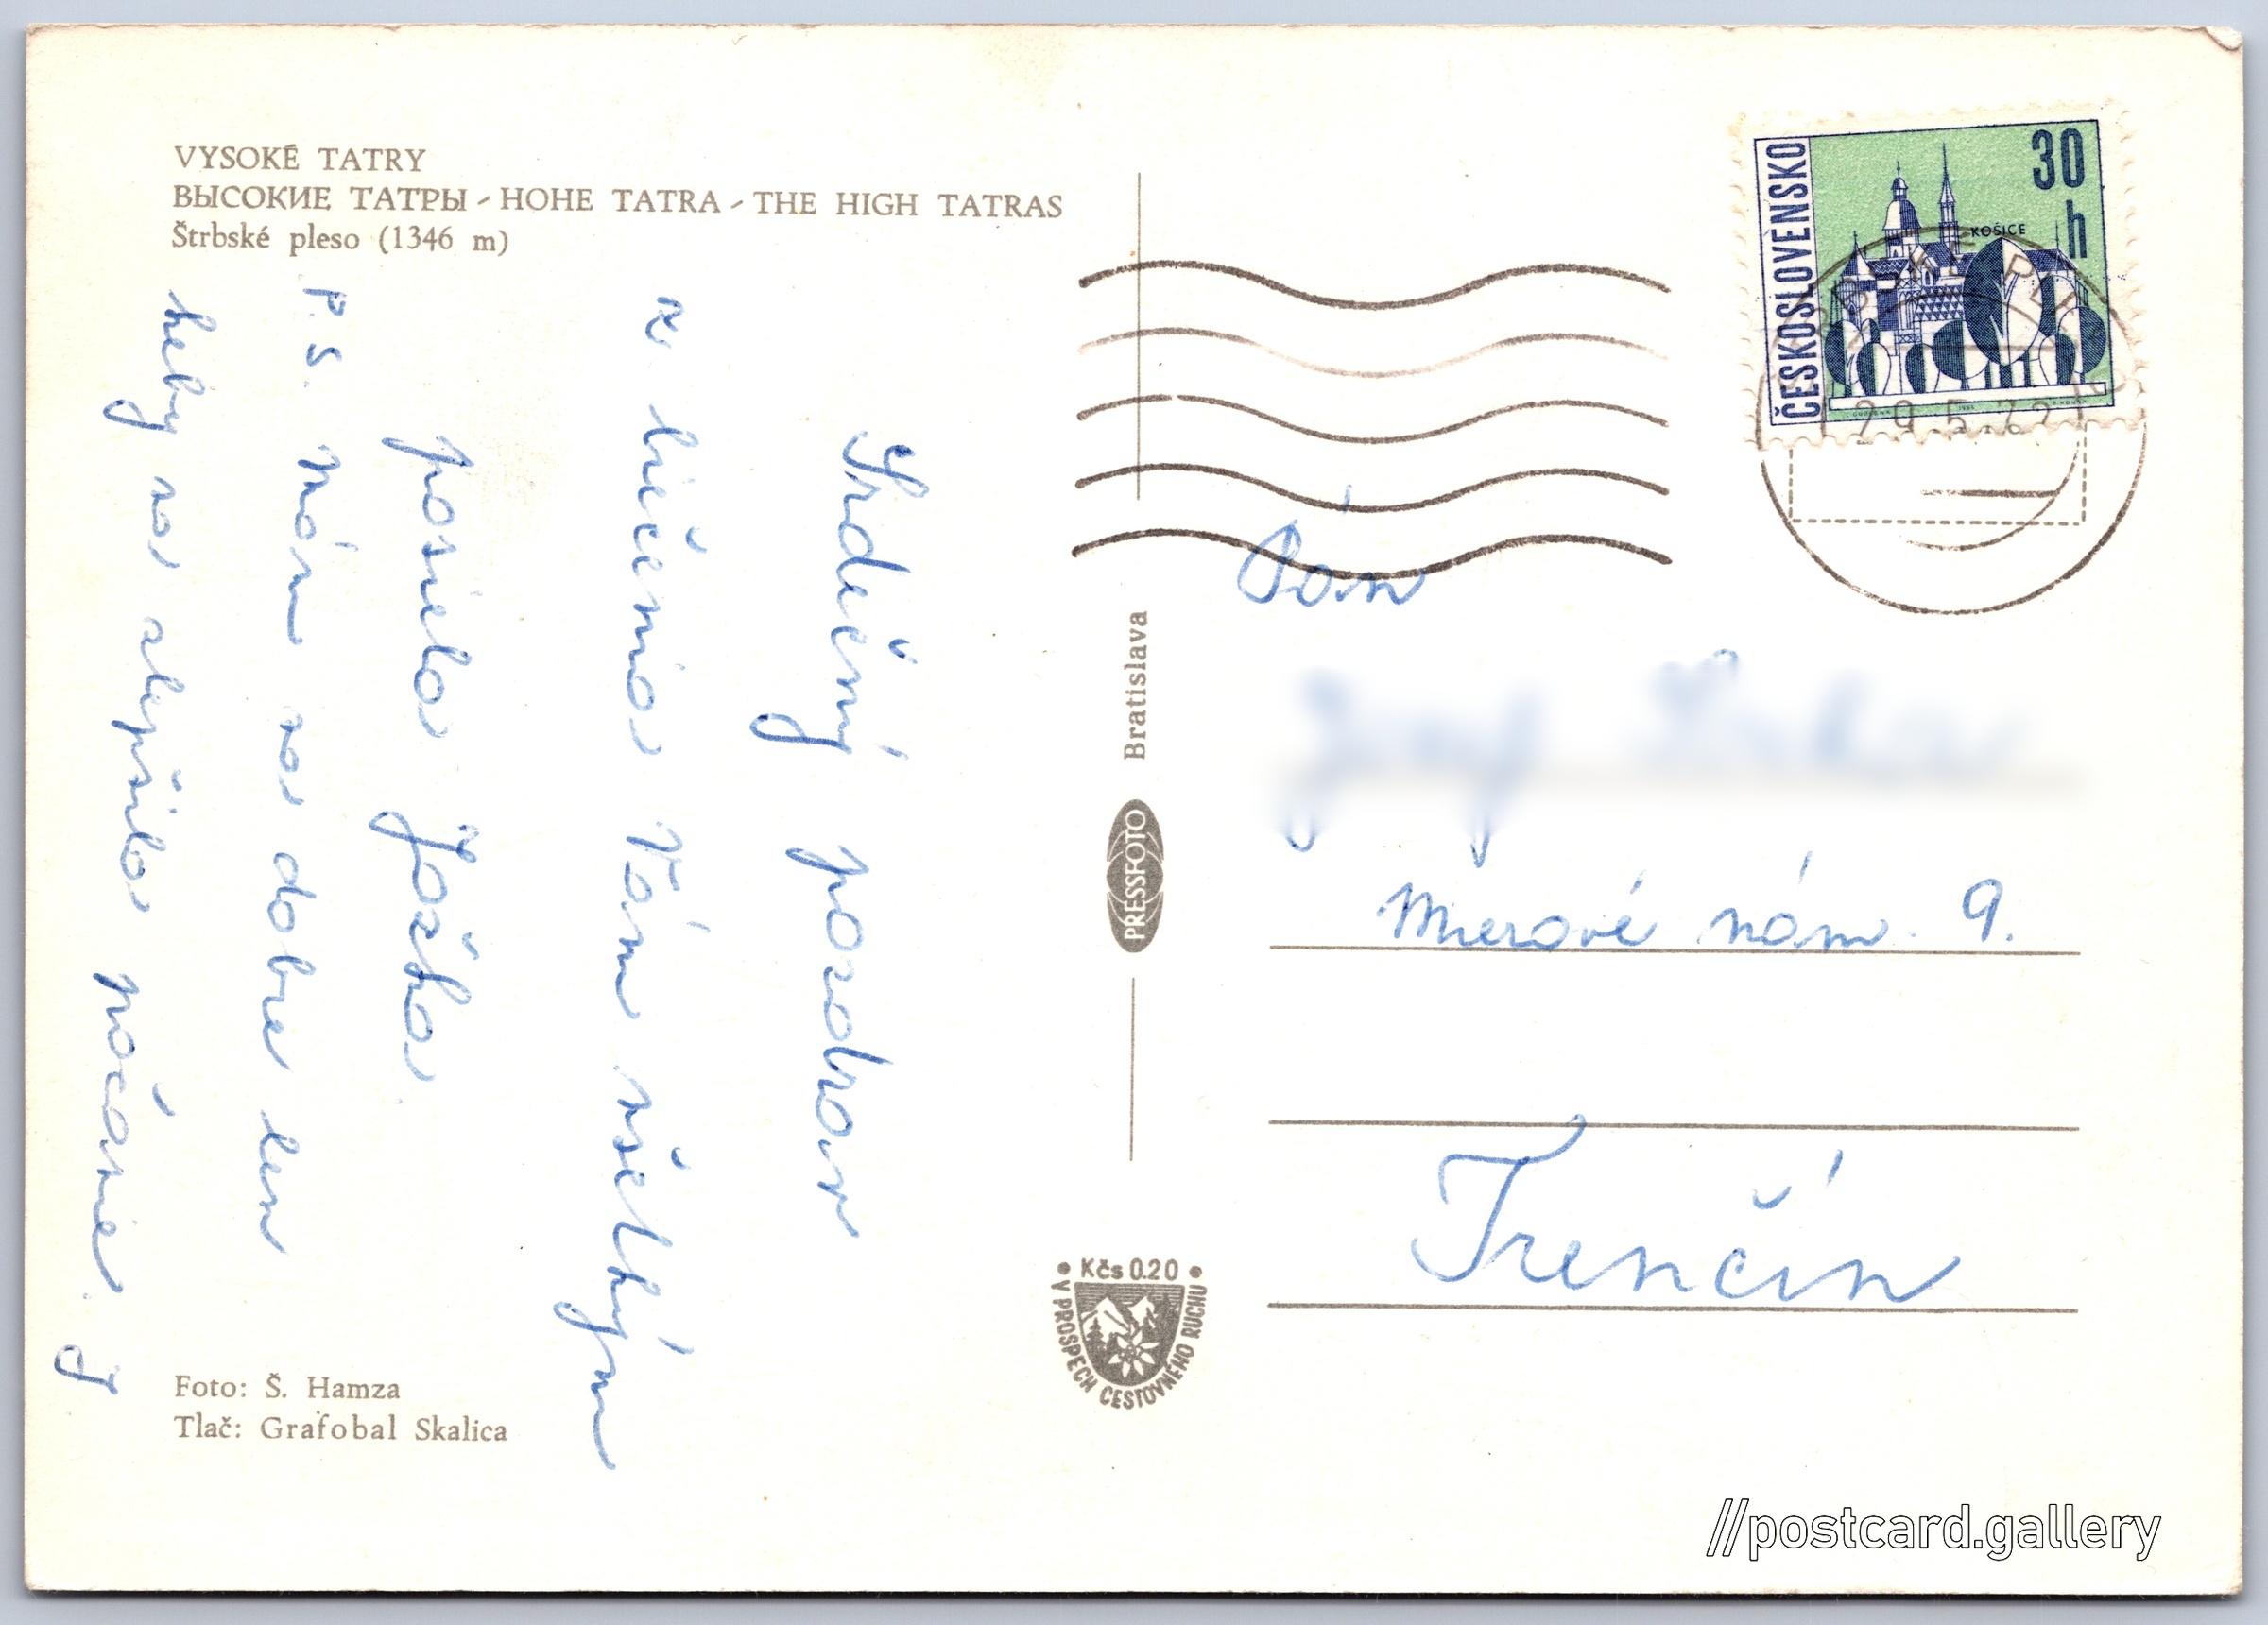 VYSOKÉ TATRY
ВЫСОКИЕ ТАТРЫ - HOHE TATRA - THE HIGH TATRAS
Štrbské pleso (1346 m)
Srdečný pozdrav
z liečenia Vám všetkým
posiela Joška.
P.S. mám sa dobre len
keby sa zlepšilo počásie. J
Foto: Š. Hamza
Tlač: Grafobal Skalica
Bratislava
PRESSFOTO
Kčs 0.20
V PROSPECH CESTOVNÉHO RUCHU
ČESKOSLOVENSKO
30
h
KOŠICE
29.5.
Pán
Mierové nám. 9.
Trenčín
//postcard.gallery